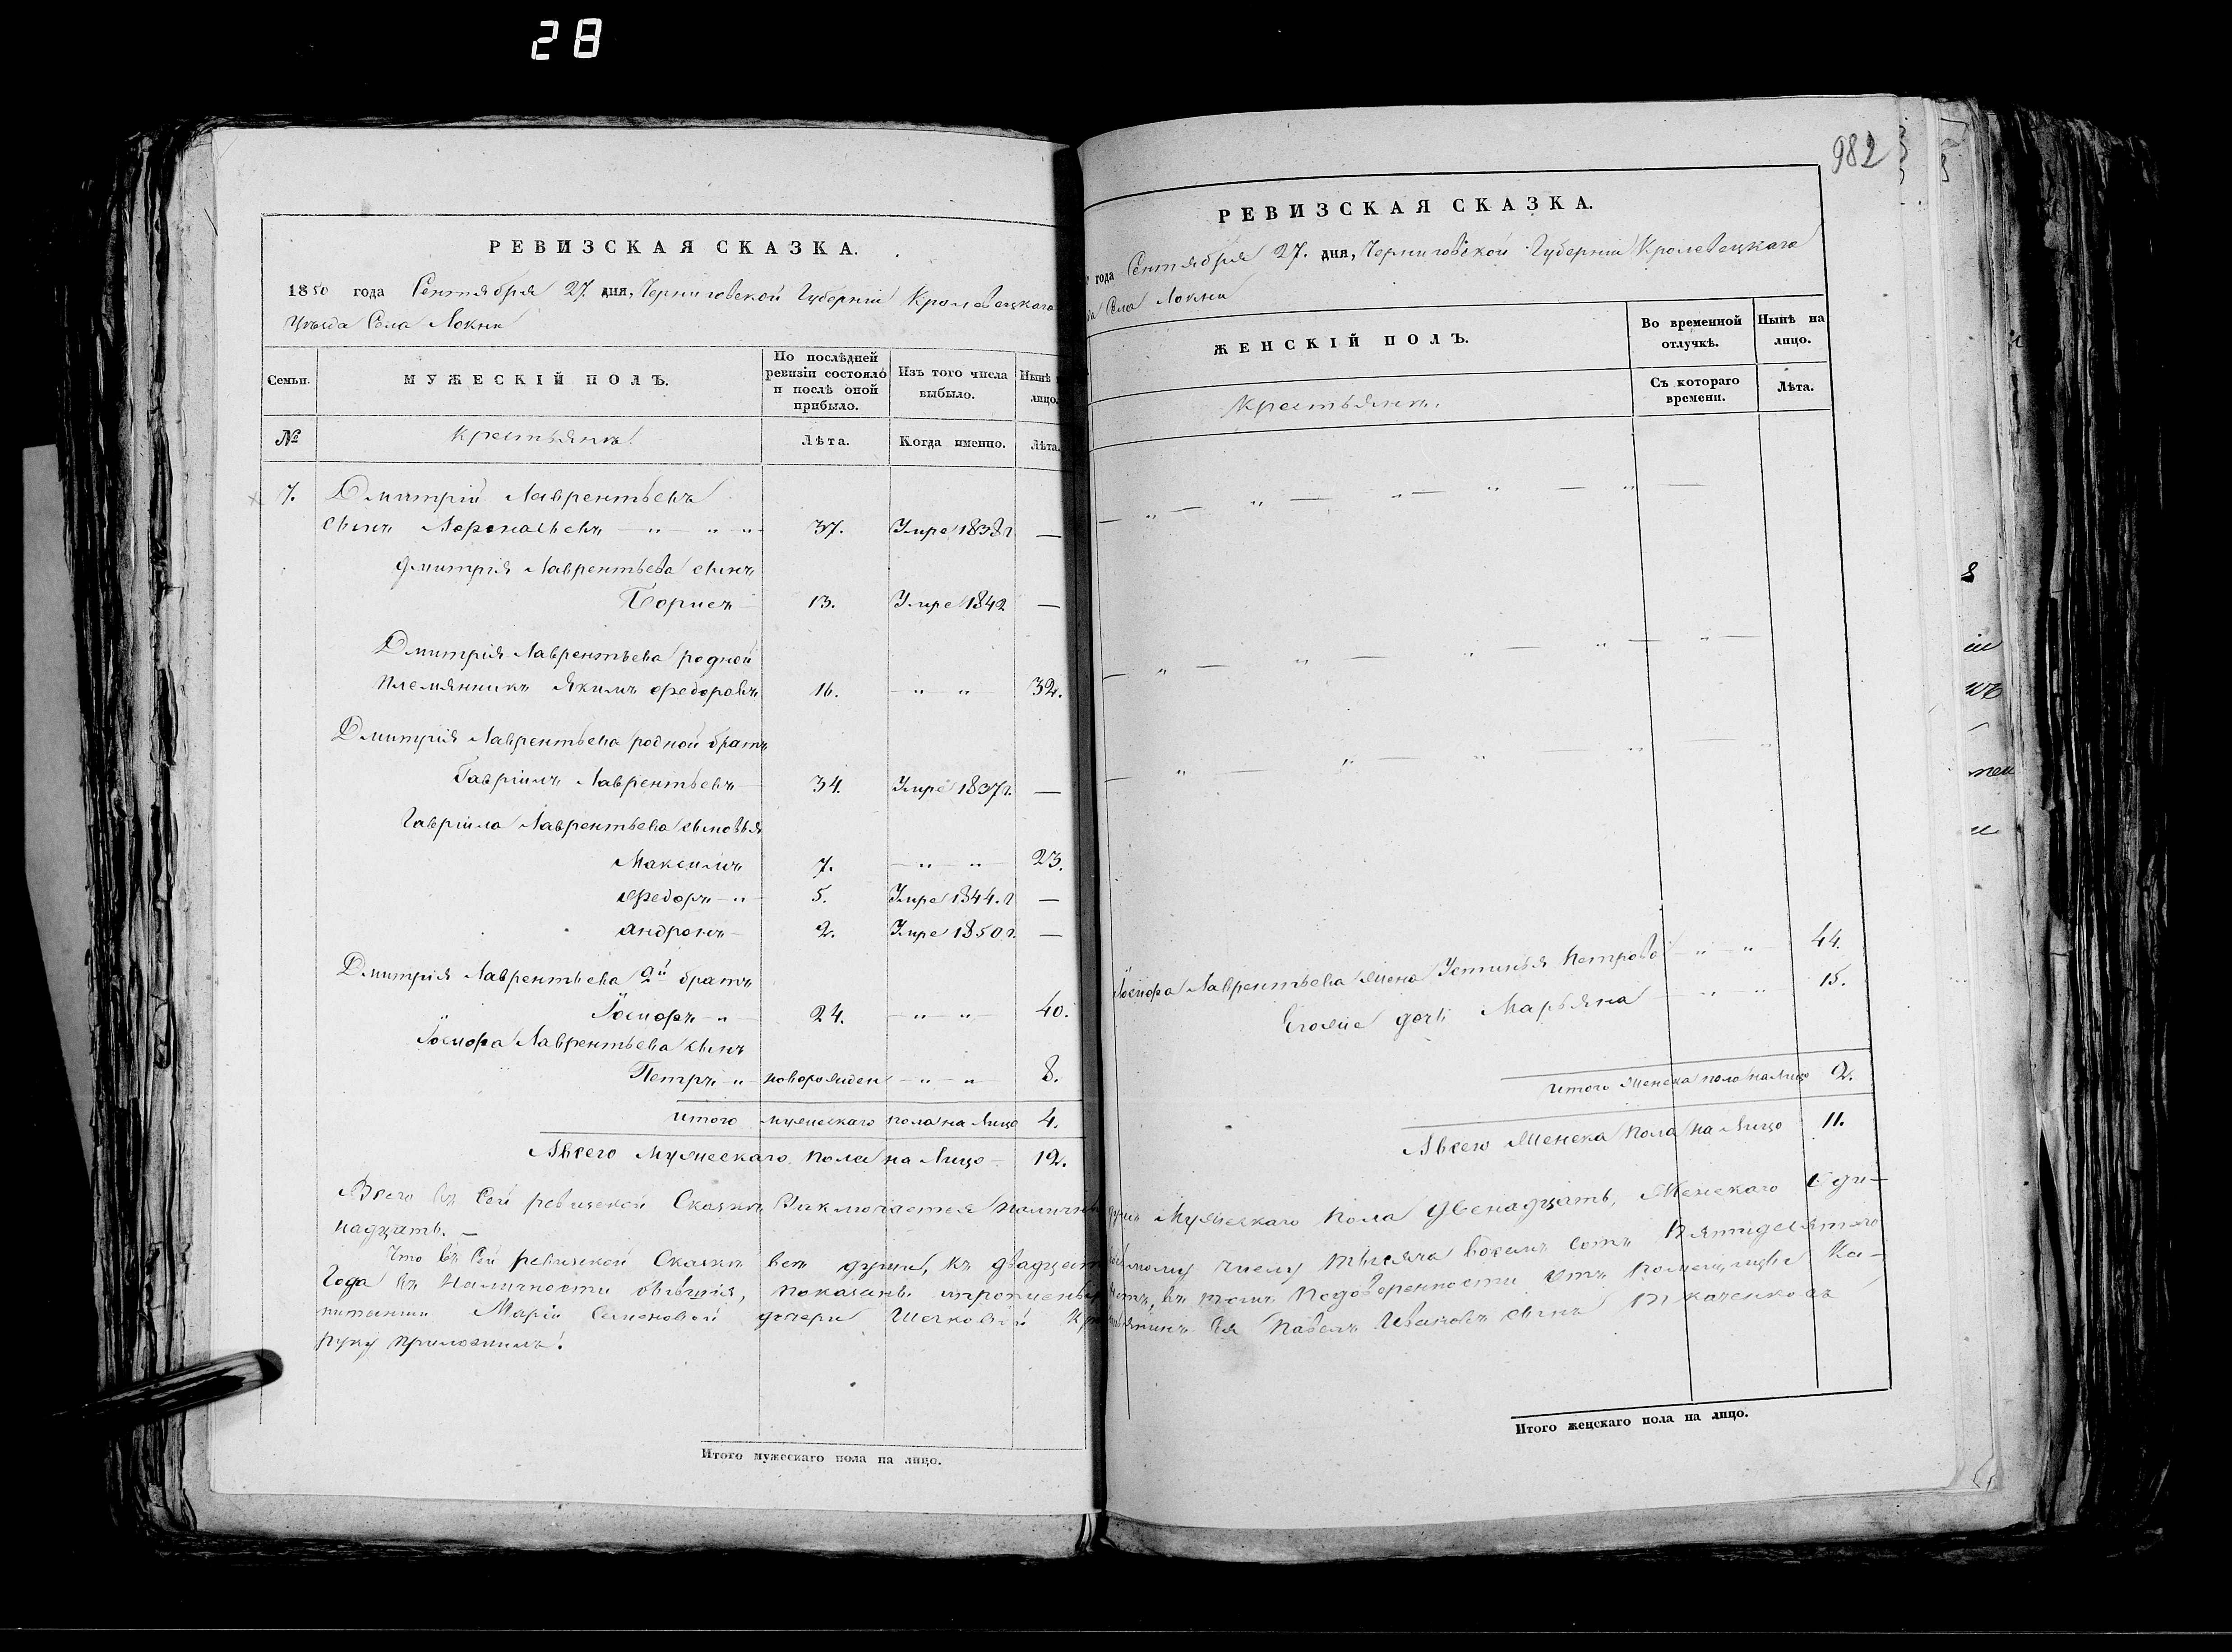 28
РЕВИЗСКАЯ СКАЗКА.
1850 года Сентября 27. дня, Черниговской Губерніи Кролевецкаго
Уѣзда Села Локни
Семьи.
МУЖЕСКІЙ ПОЛЪ.
По послѣдней ревизіи состояло и послѣ оной прибыло.
Изъ того числа выбыло.
Нынѣ
лицо.
№
Крестьянъ
Лѣта.
Когда именно.
Лѣта.
7. Дмитрій Лаврентьевъ
сынъ 37. Умре 1838 г —
Дмитрія Лаврентьева сынъ
Борисъ 13. Умре 1842 —
Дмитрія Лаврентьева родной
племянникъ Якимъ Федоровъ 16. — „ „ 32.
Дмитрія Лаврентьева родной братъ
Гавріилъ Лаврентьевъ 34. Умре 1837 г. —
Гавріила Лаврентьева сыновья
Максимъ 7. — „ — „ 23.
Федоръ — „ 5. Умре 1844. г —
Андронъ — 2. Умре 1850 г. —
Дмитрія Лаврентьева 2й братъ
Іосифъ — „ 24. — „ — „ 40.
Іосифа Лаврентьева сынъ
Петръ — „ новорожден — „ — „ 8.
Итого мужескаго пола на лицо 4.
А всего мужескаго пола на лицо — 12.
Всего въ сей ревизской сказкѣ заключается наличныхъ
надцать. —
Что въ сей ревизской сказкѣ всѣ души, къ двадцать
года въ наличности бывшія, показаны
питанши Маріи Семеновой дочери
руку приложилъ!
Итого мужескаго пола на лицо.
982
РЕВИЗСКАЯ СКАЗКА.
года Сентября 27. дня, Черниговской Губерніи Кролевецкаго
Села Локни
ЖЕНСКІЙ ПОЛЪ.
Во временной отлучкѣ.
Нынѣ на лицо.
Крестьянъ.
Съ котораго времени.
Лѣта.
Іосифа Лаврентьева жена Устинья Петрова — „ — „ 44.
Егоже дочь Марьяна — „ — „ 15.
Итого женска пола на лицо 2.
А всего женска пола на лицо 11.
душъ мужескаго пола двенадцать, женскаго оди-
мому числу тысяча восемь сотъ пятидесятаго
въ томъ по доверенности отъ помещицы Ка-
Павелъ Ивановъ сынъ Ткаченковъ
Итого женскаго пола на лицо.